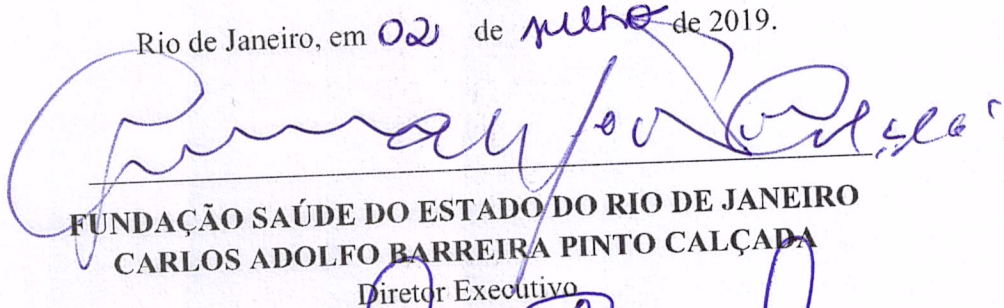 Rio de Janeiro, em 02 de julho de 2019.
FUNDAÇÃO SAÚDE DO ESTADO DO RIO DE JANEIRO
CARLOS ADOLFO BARREIRA PINTO CALÇADA
Diretor Executivo